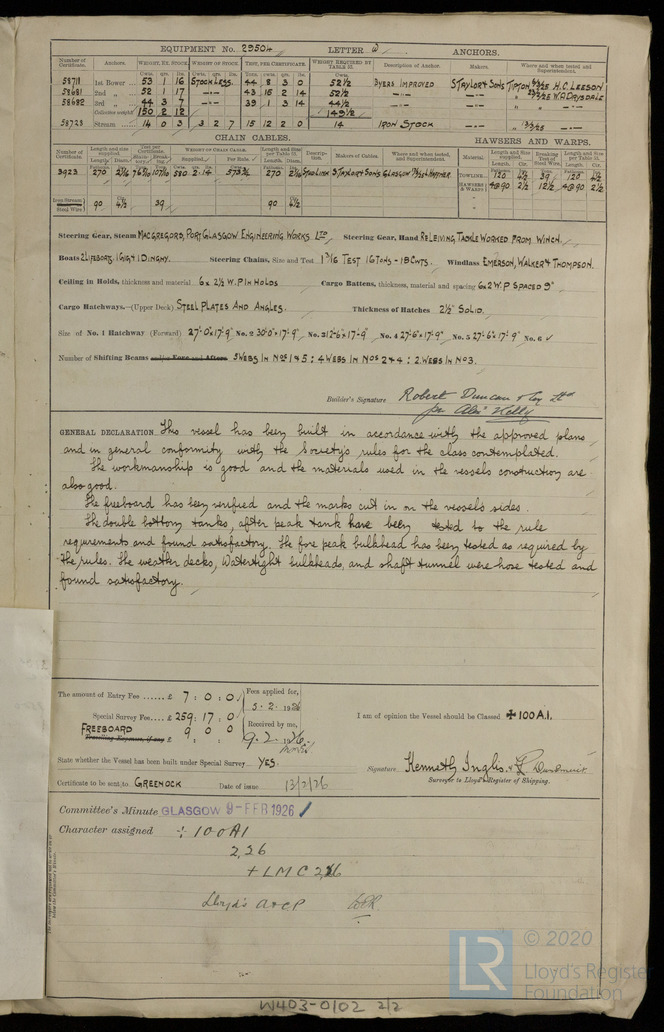 EQUIPMENT No. 29504 LETTER W ANCHORS.
Number of Certificate. Anchors. WEIGHT, EX. STOCK. WEIGHT OF STOCK. TEST, PER CERTIFICATE. WEIGHT REQUIRED BY TABLE 31. Description of Anchor. Makers. Where and when tested and Superintendent.
58711 1st Bower 53 1 16 STOCKLESS. 44 8 3 0 52½ BYERS IMPROVED S.TAYLOR & SONS TIPTON H.C. LEESON
58681 2nd " 52 1 17 43 15 2 14 52½
58682 3rd " 44 3 7 39 1 3 14 44½ W.A. DRYSDALE
Collective weight 150 2 12 149½
58723 Stream 14 0 3 3 2 7 15 12 2 0 14 IRON STOCK
CHAIN CABLES. HAWSERS AND WARPS.
Number of Certificate. Length and size supplied. Test per Certificate. WEIGHT OF CHAIN CABLE. Length and size per Table 31. Description. Makers of Cables. Where and when tested, and Superintendent. Material. Length and Size supplied. Breaking Test of Steel Wire. Length and Size per Table 31.
3923 270 2 1/16 580 2 14 270 2 1/16 STUD LINK S.TAYLOR & SONS GLASGOW TOWLINE 120 4½ 39 120 4½
HAWSERS & WARPS 4@90 2½ 12½ 4@90 2½
Iron Stream or Steel Wire 90 4½ 39 90 4½
Steering Gear, Steam MACGREGORS, PORT GLASGOW ENGINEERING WORKS LTD Steering Gear, Hand RELEIVING TACKLE WORKED FROM WINCH.
Boats 2 LIFEBOATS, 1 GIG & 1 DINGHY. Steering Chains, Size and Test 1 3/16 TEST 16 TONS - 18 CWTS. Windlass EMERSON, WALKER & THOMPSON.
Ceiling in Holds, thickness and material 6 x 2½ W.P IN HOLDS Cargo Battens, thickness, material and spacing 6 x 2 W.P SPACED 9"
Cargo Hatchways.—(Upper Deck) STEEL PLATES AND ANGLES. Thickness of Hatches 2½" SOLID.
Size of No. 1 Hatchway (Forward) 27'-0" x 17'-9" No. 2 30'-0" x 17'-9" No. 3 12'-6" x 17'-9" No. 4 27'-6" x 17'-9" No. 5 27'-6" x 17'-9" No. 6
Number of Shifting Beams and/or Fore and Afters 3 WEBS IN NOS 1 & 5 : 4 WEBS IN NOS 2 & 4 : 2 WEBS IN NO 3.
Builder's Signature Robert Duncan & Co Ltd
per Alex Kelly
GENERAL DECLARATION. This vessel has been built in accordance with the approved plans
and in general conformity with the Society's rules for the class contemplated.
The workmanship is good and the materials used in the vessels construction are
also good.
The freeboard has been verified and the marks cut in on the vessels sides.
The double bottom tanks, after peak tank have been tested to the rule
requirements and found satisfactory. The fore peak bulkhead has been tested as required by
the rules. The weather decks, Watertight bulkheads, and shaft tunnel were hose tested and
found satisfactory.
The amount of Entry Fee £ 7 : 0 : 0 Fees applied for,
5. 2. 1926
Special Survey Fee £ 259 : 17 : 0 I am of opinion the Vessel should be Classed ✠ 100 A.1.
FREEBOARD 9 0 0 Received by me,
Travelling Expenses, if any £ 9. 2. 1926.
State whether the Vessel has been built under Special Survey YES.
Signature Kenneth Inglis
Surveyor to Lloyd's Register of Shipping.
Certificate to be sent to GREENOCK Date of issue 13/2/26
Committee's Minute GLASGOW 9-FEB 1926
Character assigned + 100A1
2,26
+ LMC 2,26
Lloyd's A&CP
W403-0102 2/2
© 2020
LR
Lloyd's Register
Foundation